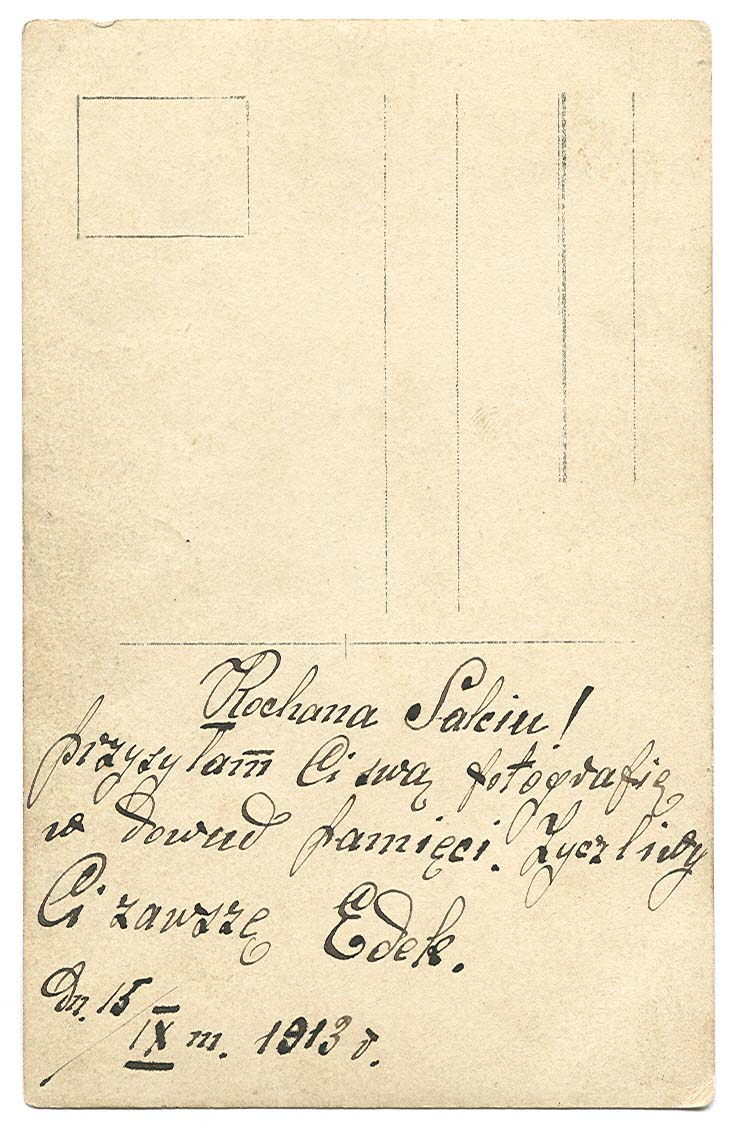 Kochana Salciu!
przysyłam Ci swą fotografię
w dowud pamięci. Życzliwy
Ci zawszę Edek.
Dn. 15/IX m. 1913 r.